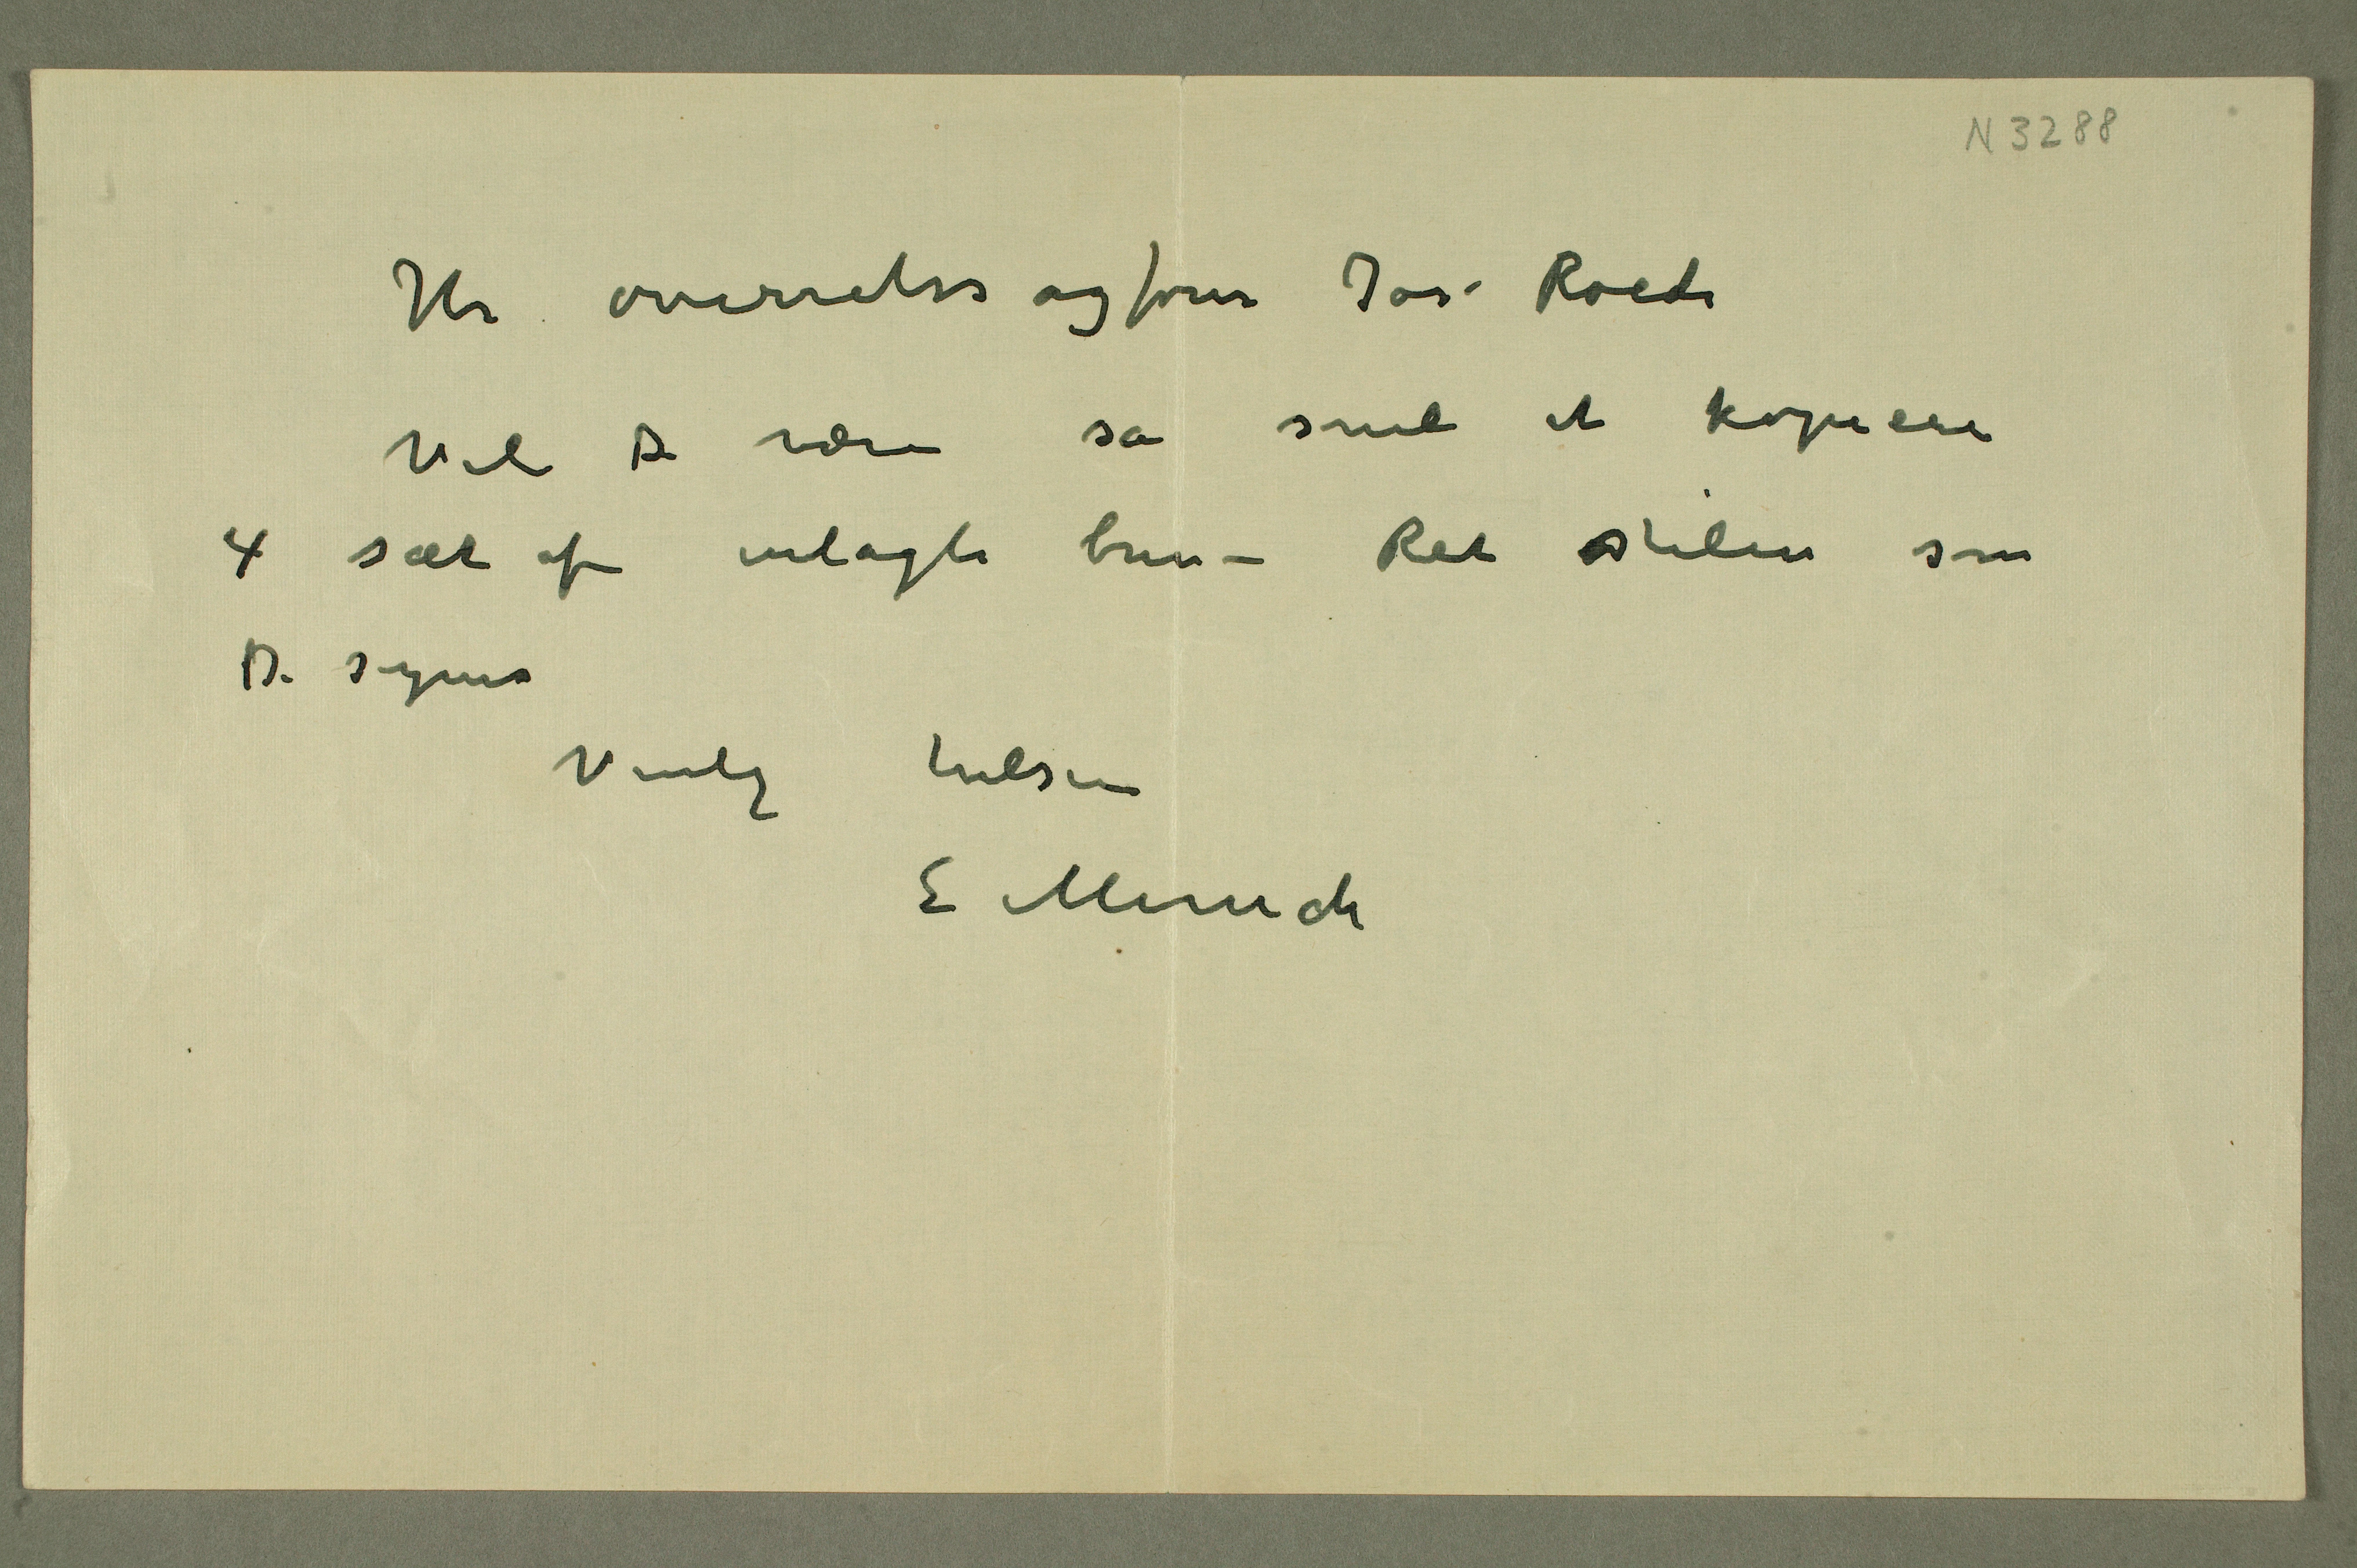 N 3288
Hr. overretssagfører Joh. Roede
Vil De være så snil at kopiere
4 sæt af indlagte brev – Ret stilen som
De synes
Venlig hilsen
E Munch